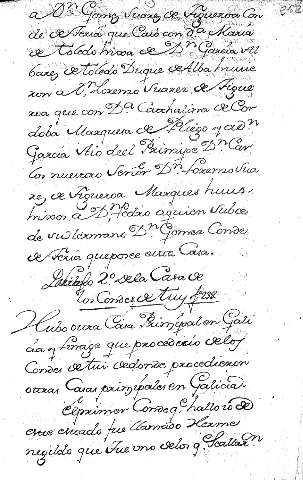 a Dn. Gomez Suarez de Figueroa Con
de de Feria que Casò con da. Maria
de toledo hixa de Dn. Garcia Al
barez de toledo Duque de Alba huvie
ron a Dn. Lorenzo Suarez de Figue
roa que con Da. Cathalina de Cor
doba Marquesa de Pliego y a Dn.
Garcia Aio del Principe Dn. Car
los nuestro Señor Dn. Lorenzo Sua
rez de Figueroa Marques huvo
hixos a Dn. Pedro a quien Subce
de su hermano Dn. Gomez Conde
de Feria que posee esta Casa.
2o. de la Casa de
los Condes de tuy
Hubo otra Casa Principal en Gali
cia y linage que procedio de los
Condes de tui de donde procedieron
otras Casas principales en Galicia
el primer Conde q. hallo
este estado fue llamado Herme
negildo que fue uno de los q.